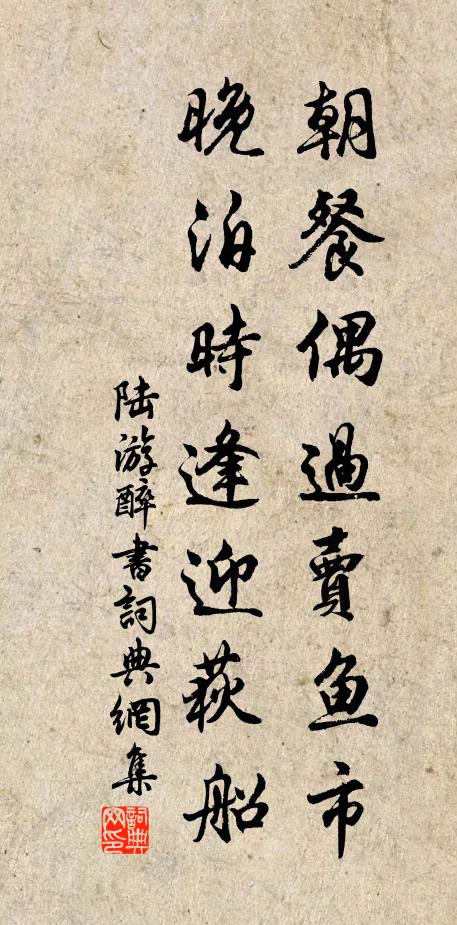 朝餐偶過賣魚市
晚泊時逢迎荻船
陸游醉書詞典網集
詞典网印